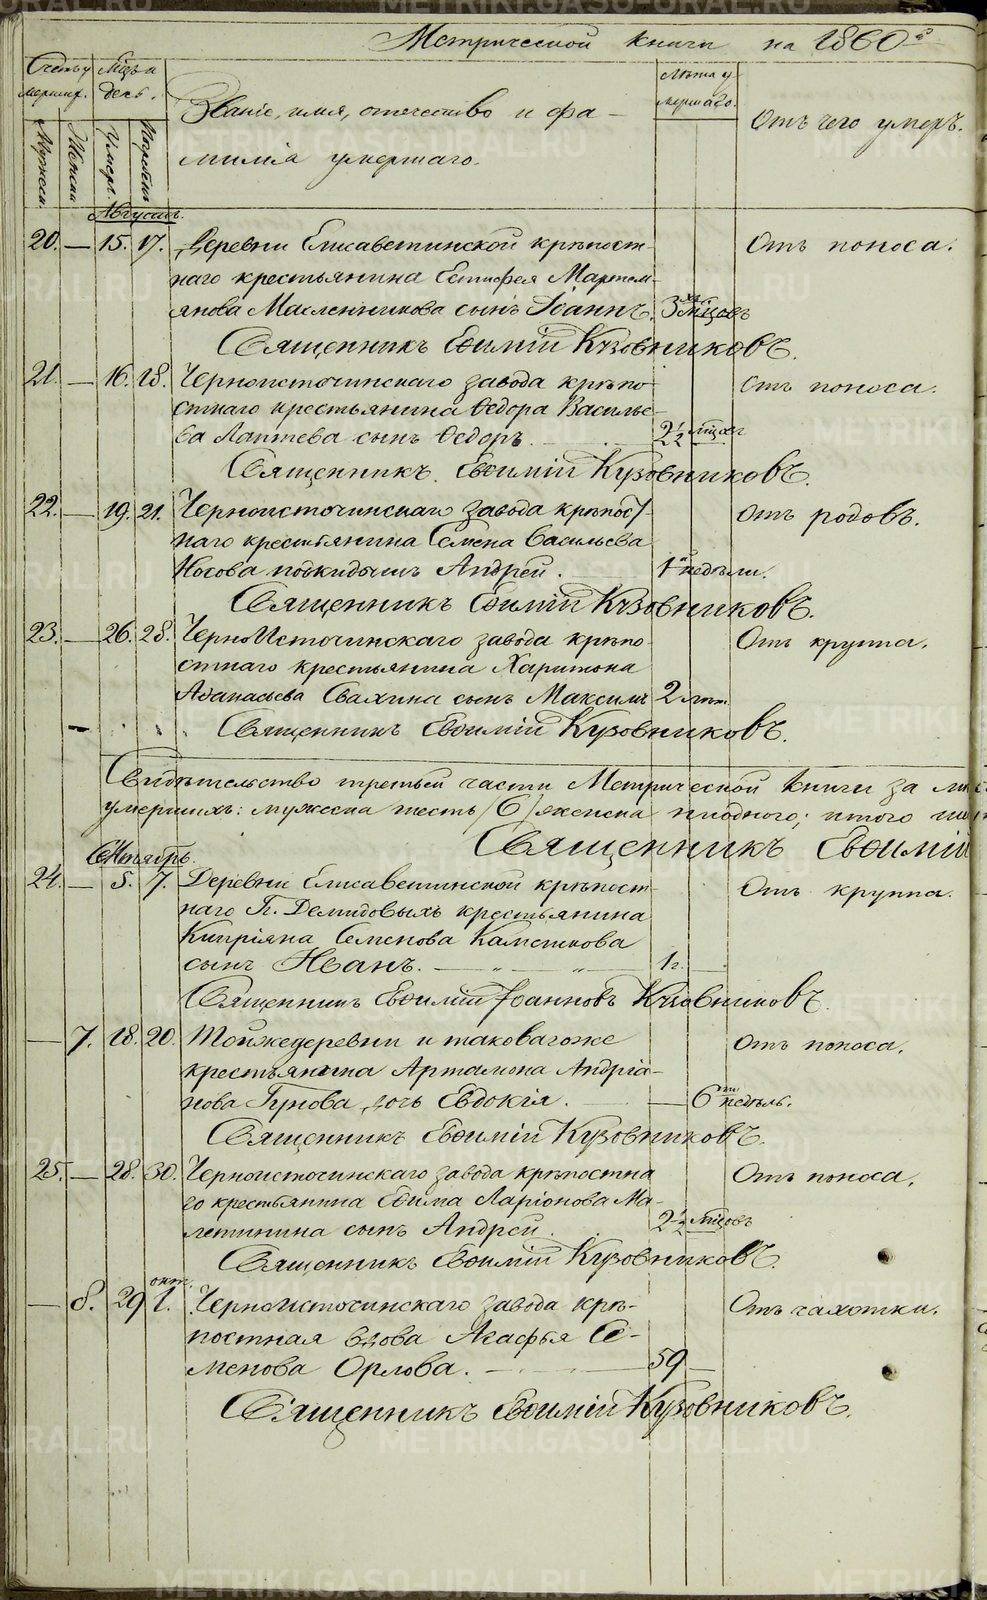 Метрической книги на 1860й
Счетъ у мершихъ. Мѣсяцъ и день. Званіе, имя, отечество и фа- Лѣта у мершаго. Отъ чего умеръ.
Мужеска. Женска. Умерт. Погребен. милія умершаго.
Августъ.
20. — 15. 17. Деревни Елисаветинской крѣпост- Отъ поноса.
наго крестьянина Естифея Мартем-
янова Масленникова сынъ Іоаннъ. 3 мѣсцовъ
Священникъ Евѳимій Кузовниковъ.
21. — 16. 18. Черноисточинскаго завода крѣпо- Отъ поноса.
стнаго крестьянина Ѳедора Василье-
ва Лаптева сынъ Ѳедоръ. 2½ мѣсцовъ
Священникъ Евѳимій Кузовниковъ.
22. — 19. 21. Черноисточинскаго завода крѣпост- отъ родовъ.
наго крестьянина Семена Васильева
Носова подкидышъ Андрей. 1й недѣли.
Священникъ Евѳимій Кузовниковъ.
23. — 26. 28. ЧерноИсточинскаго завода крѣпо- Отъ круппа.
стнаго крестьянина Харитона
Аѳанасьева Свахина сынъ Максимъ 2 лѣт
Священникъ Евѳимій Кузовниковъ.
Свидѣтельство третьей части Метрической книги за
умершихъ: мужеска шесть /6/ женска ниодного; итого
Священникъ Евѳимій
Сентябрь.
24. — 5. 7. Деревни Елисаветинской крѣпост- Отъ круппа.
наго Гг. Демидовыхъ крестьянина
Кипріяна Семенова Каметкова
сынъ Иванъ. 1 г.
Священникъ Евѳимій Іоанновъ Кузовниковъ.
— 7. 18. 20. Тойжедеревни и таковагоже Отъ поноса.
крестьянина Артамона Андрія-
нова Гунова, дочь Евдокія. — 6ти недѣль.
Священникъ Евѳимій Кузовниковъ.
25. — 28. 30. Черноисточинскаго завода крѣпостна Отъ поноса.
го крестьянина Ефима Ларіонова Ма-
летинина сынъ Андрей. 2½ мѣсцовъ
Священникъ Евѳимій Кузовниковъ.
окт.
— 8. 29 1. Черноисточинскаго завода крѣ- Отъ чахотки.
постная вдова Агафья Се-
менова Орлова. 59
Священникъ Евѳимій Кузовниковъ.
METRIKI.GASO-URAL.RU